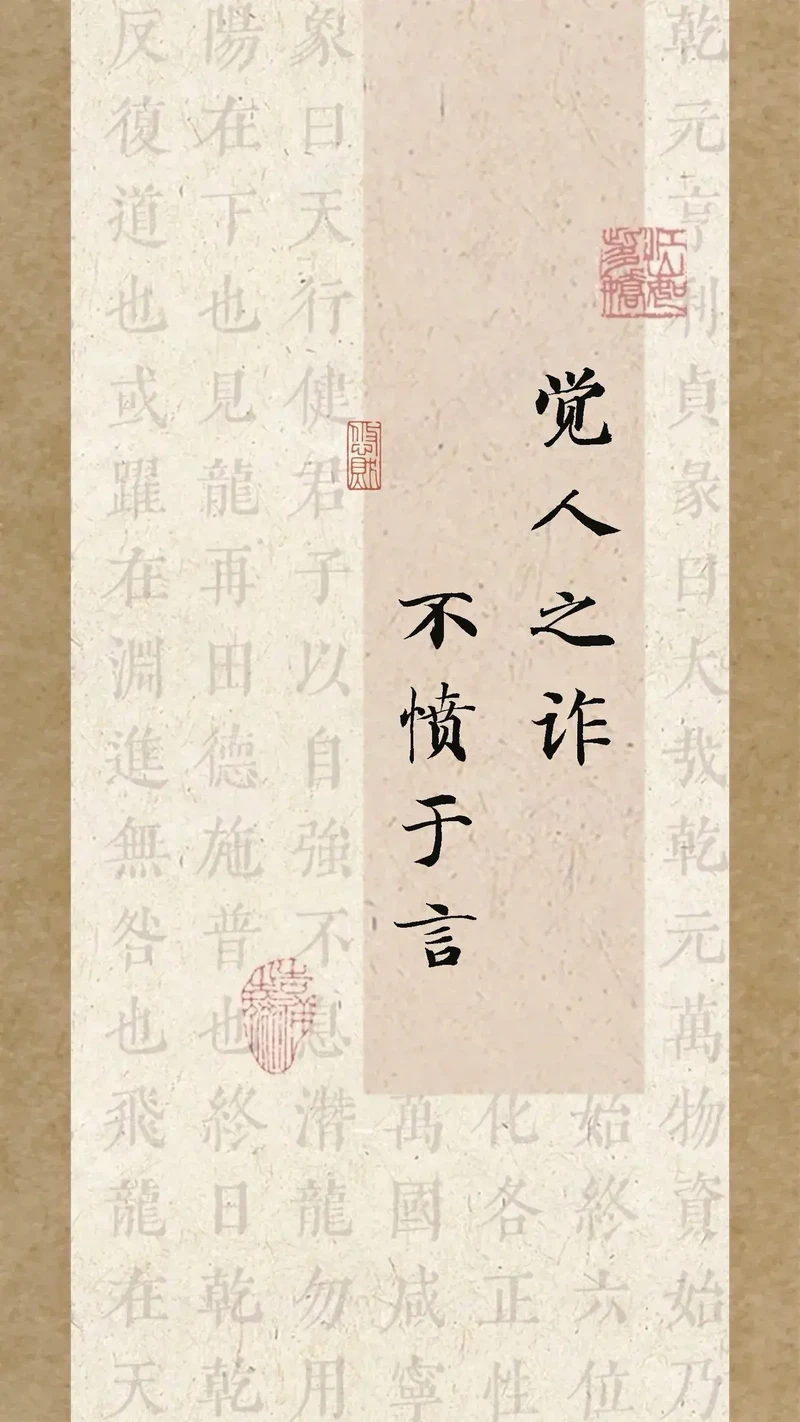 觉人之诈
不愤于言
乾元亨利貞彖曰大哉乾元萬物資始乃
始終六位
化各正性
萬國咸寧
象曰天行健君子以自強不息潛龍勿用
陽在下也見龍再田德施普也終日乾乾
反復道也或躍在淵進無咎也飛龍在天